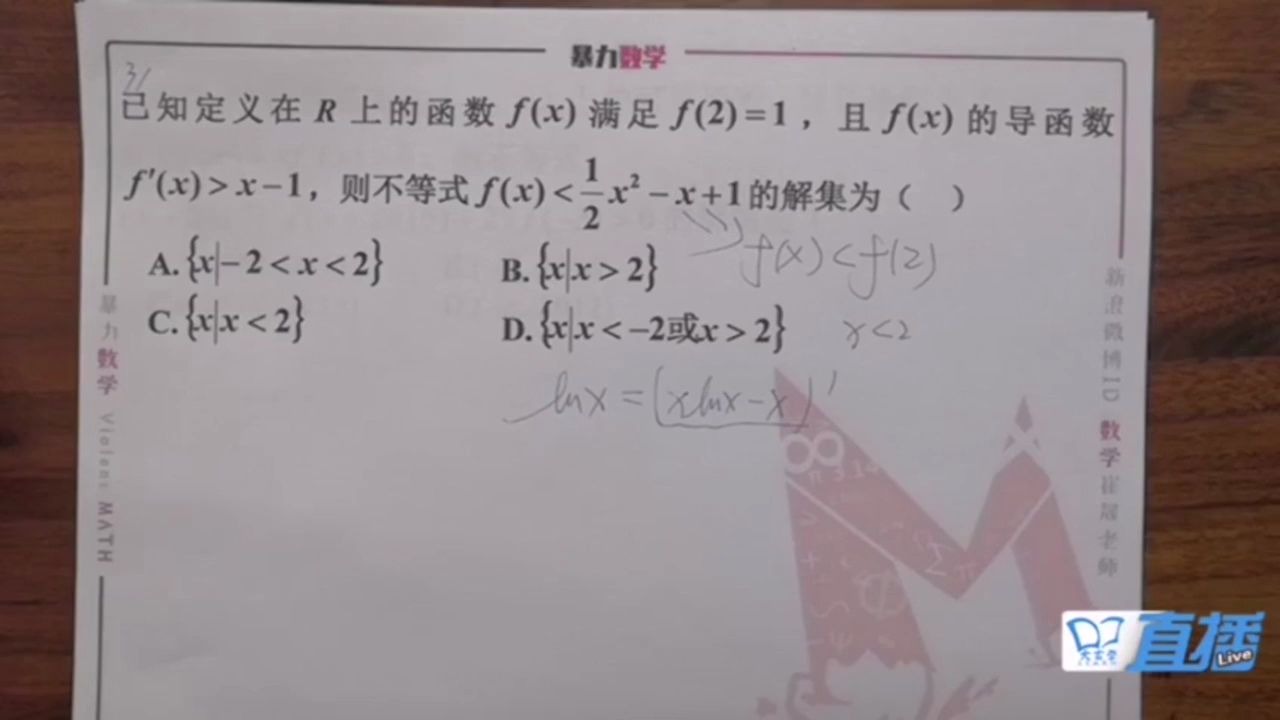 暴力数学
3/
已知定义在 R 上的函数 f(x) 满足 f(2)=1，且 f(x) 的导函数
f′(x)>x−1，则不等式 f(x)<1/2x²−x+1的解集为（ ）
f(x)<f(2)
A.{x|−2<x<2} B.{x|x>2}
C.{x|x<2} D.{x|x<−2或x>2}
x<2
lnx=(xlnx−x)′
暴力数学 Violent MATH
新浪微博ID 数学崔晟老师
直播
Live